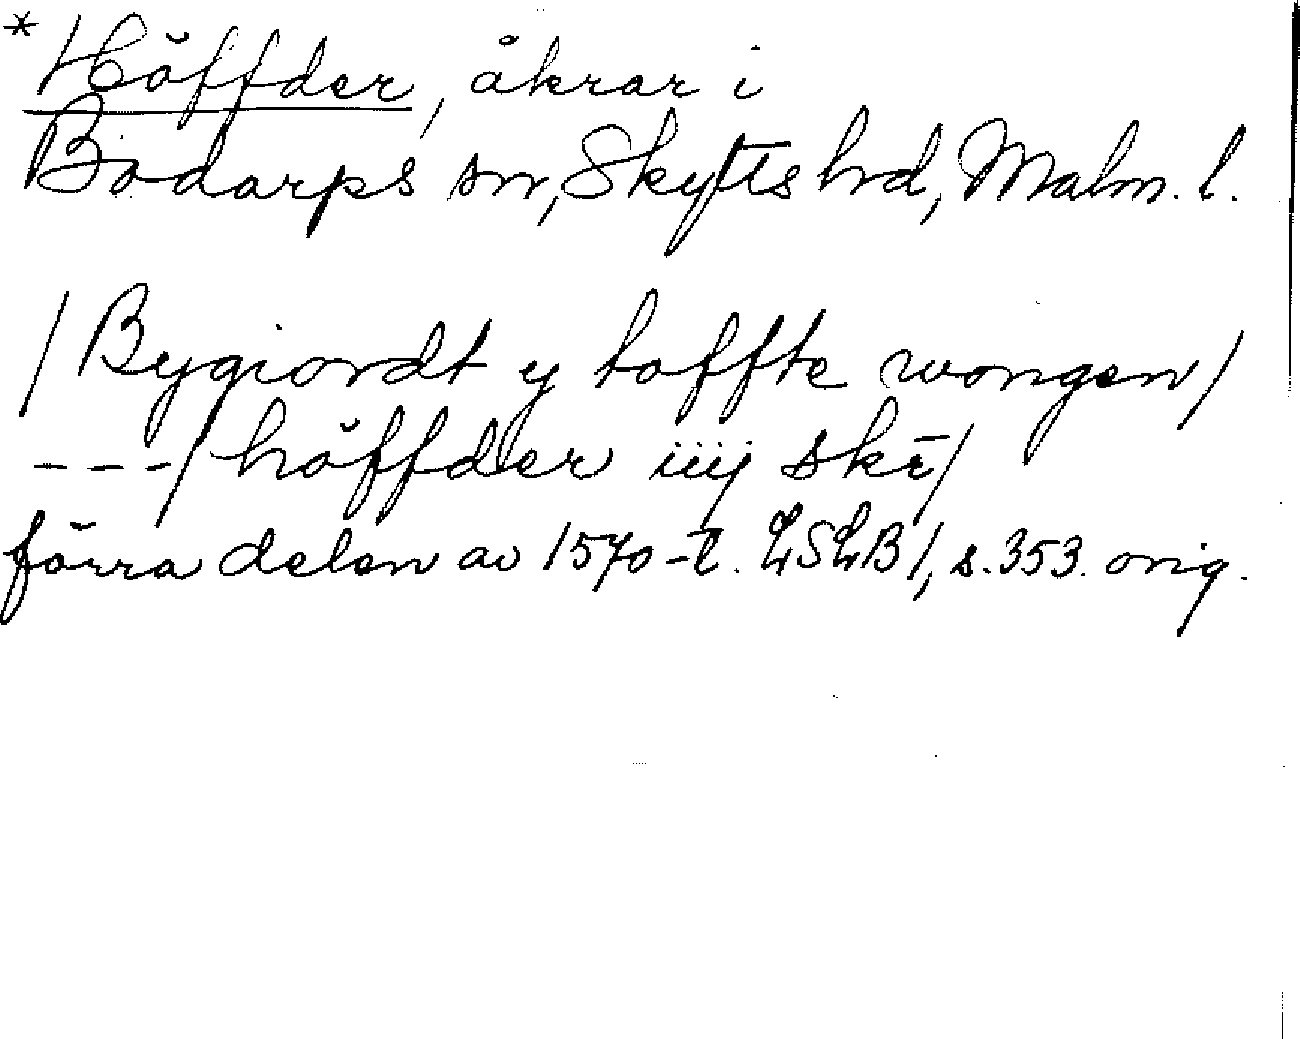 *Höffder, åkrar i
Bodarps sn, Skytts hd, Malm. l.
/Bygiordt y toffte wongen/
---/höffder iiij skr̄/
förra delen av 1570-t. LSLB 1, s. 353. orig.